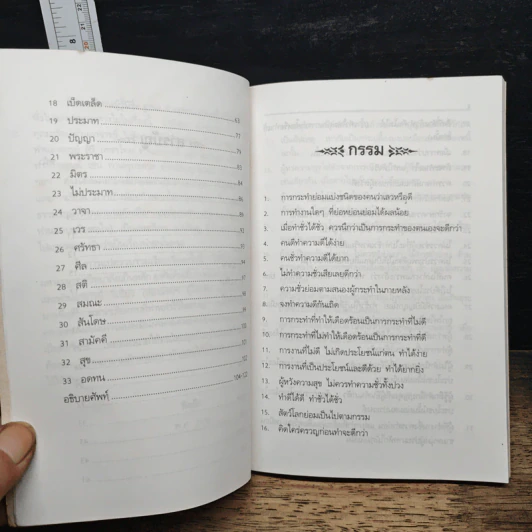 18 เบ็ดเตล็ด 63
19 ประมาท 77
20 ปัญญา 79
21 พระราชา
22 มิตร 84
23 ไม่ประมาท 86
24 วาจา 89
25 เวร
26 ศรัทธา
27 ศีล
28 สติ
29 สมณะ
30 สันโดษ
31 สามัคคี
32 สุข
33 อดทน
อธิบายศัพท์
กรรม
1. การกระทำย่อมแบ่งชนิดของคนว่าเลวหรือดี
2. การทำงานใดๆ ที่ย่อหย่อนย่อมได้ผลน้อย
3. เมื่อทำชั่วได้ชั่ว ควรนึกว่าเป็นการกระทำของตนเองจะดีกว่า
4. คนดีทำความดีได้ง่าย
5. คนชั่วทำความดีได้ยาก
6. ไม่ทำความชั่วเสียเลยดีกว่า
7. ความชั่วย่อมตามสนองผู้กระทำในภายหลัง
8. จงทำความดีกันเถิด
9. การกระทำที่ทำให้เดือดร้อนเป็นการกระทำที่ไม่ดี
10. การกระทำที่ไม่ทำให้เดือดร้อนเป็นการกระทำที่ดี
11. การงานที่ไม่ดี ไม่เกิดประโยชน์แก่ตน ทำได้ง่าย
12. การงานที่เป็นประโยชน์และดีด้วย ทำได้ยากยิ่ง
13. ผู้หวังความสุข ไม่ควรทำความชั่วทั้งปวง
14. ทำดีได้ดี ทำชั่วได้ชั่ว
15. สัตว์โลกย่อมเป็นไปตามกรรม
16. คิดใคร่ครวญก่อนทำจะดีกว่า